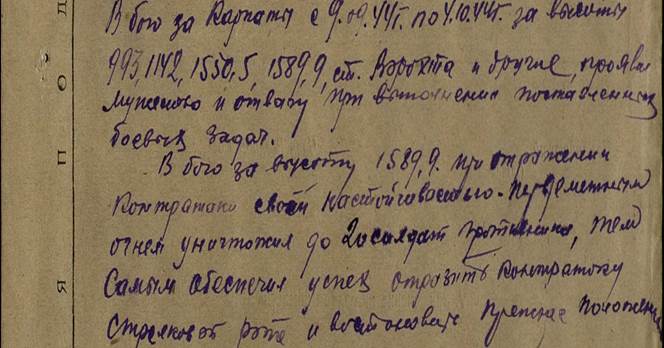 В бою за Карпаты с 9.09.44г. по 4.10.44г. за высоты
993, 1142, 1550,5, 1589,9, ст. и другие, прояви
мужество и отвагу при выполнении поставленных
боевых задач.
В бою за высоту 1589,9. при отражении
контратаки своей настойчивостью
огнем уничтожил до 20 солдат противника, тем
самым обеспечил успех отразить контратаку
стрелковой роте и востоновить прежнее положение
Д
О
П
Я